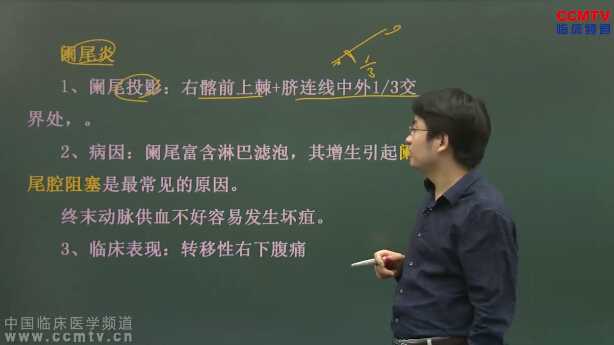 CCMTV
临床频道
阑尾炎
1/3
1、阑尾投影：右髂前上棘+脐连线中外1/3交
界处，。
2、病因：阑尾富含淋巴滤泡，其增生引起阑
尾腔阻塞是最常见的原因。
终末动脉供血不好容易发生坏疽。
3、临床表现：转移性右下腹痛
中国临床医学频道
www.ccmtv.cn